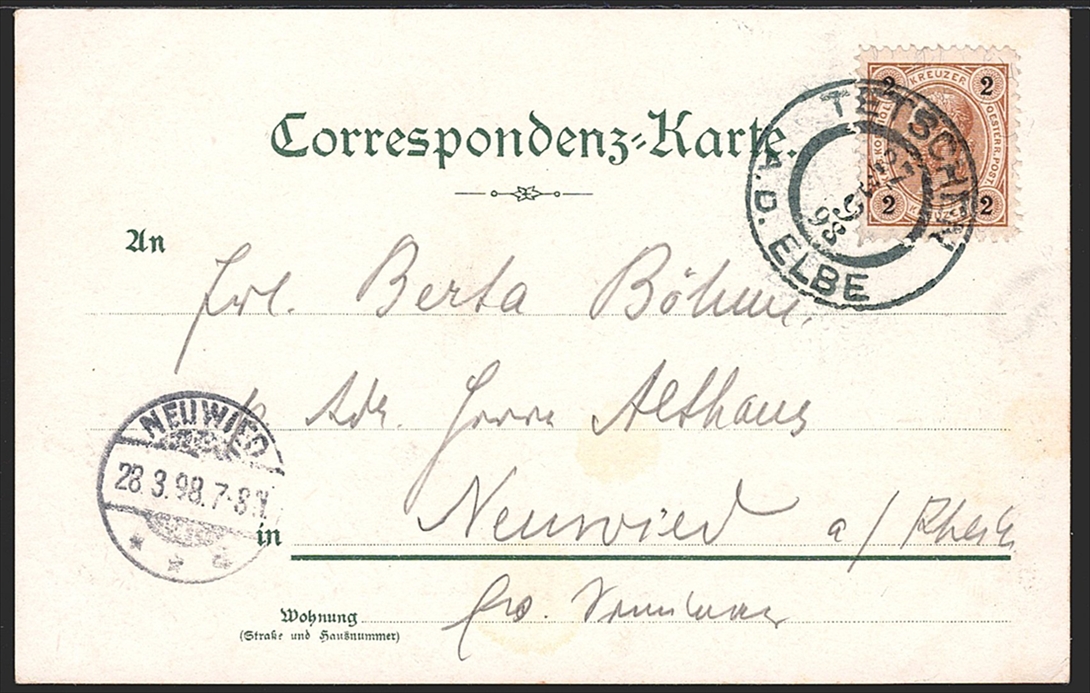 Correspondenz-Karte.
2 KREUZER 2
OESTERR. POST.
2 2
TETSCHEN
A. D. ELBE
27
98
An
Frl. Berta Böhme,
Adr. Herrn Althaus
NEUWIED
28.3.98.7-8
in Neuwied a/Rhein
Ev. Seminar
Wohnung
(Straße und Hausnummer)